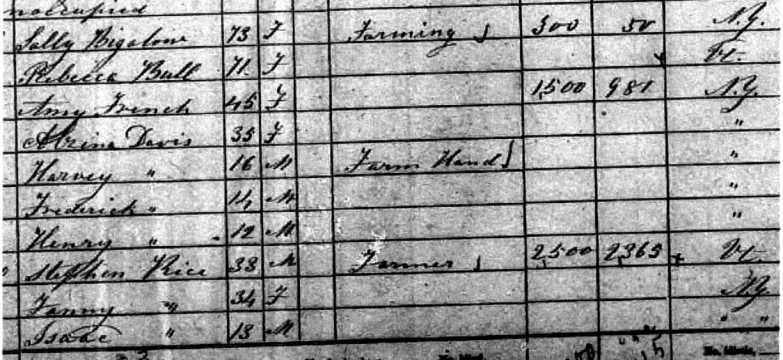 Unoccupied
Sally Bigalow 73 F Farming 300 50 N.Y.
Rebecca Bull 71 F Vt.
Amy French 45 F 1,500 981 N.Y.
Davis 35 F "
Harvey " 16 M Farm Hand "
Frederick " 14 M "
Henry " 12 M "
Stephen Rice 38 M Farmer 2,500 2,365 Vt.
Fanny " 34 F N.Y.
Isaac " 13 M " "